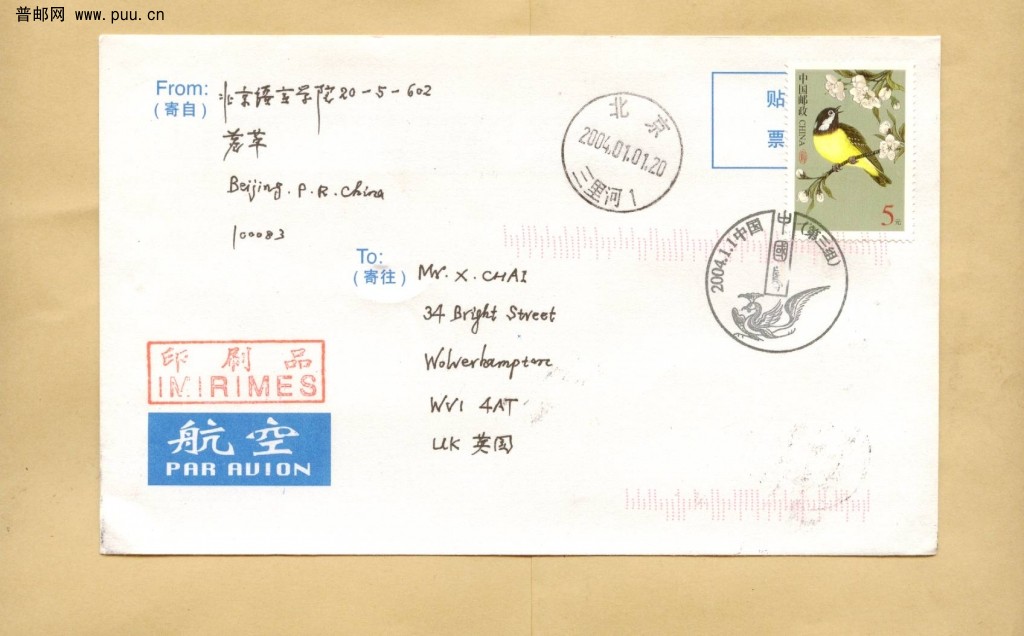 普邮网 www.puu.cn
From:
(寄自)
北京语言学院20-5-602
Beijing. P.R. China
100083
北京
2004.01.01.20
三里河1
贴
票
中国邮政 CHINA
5元
2004.1.1中国
中國
(第三组)
To:
(寄往)
Mr. X. CHAI
34 Bright Street
Wolverhampton
WV1 4AT
UK 英国
印刷品
IMPRIMES
航空
PAR AVION